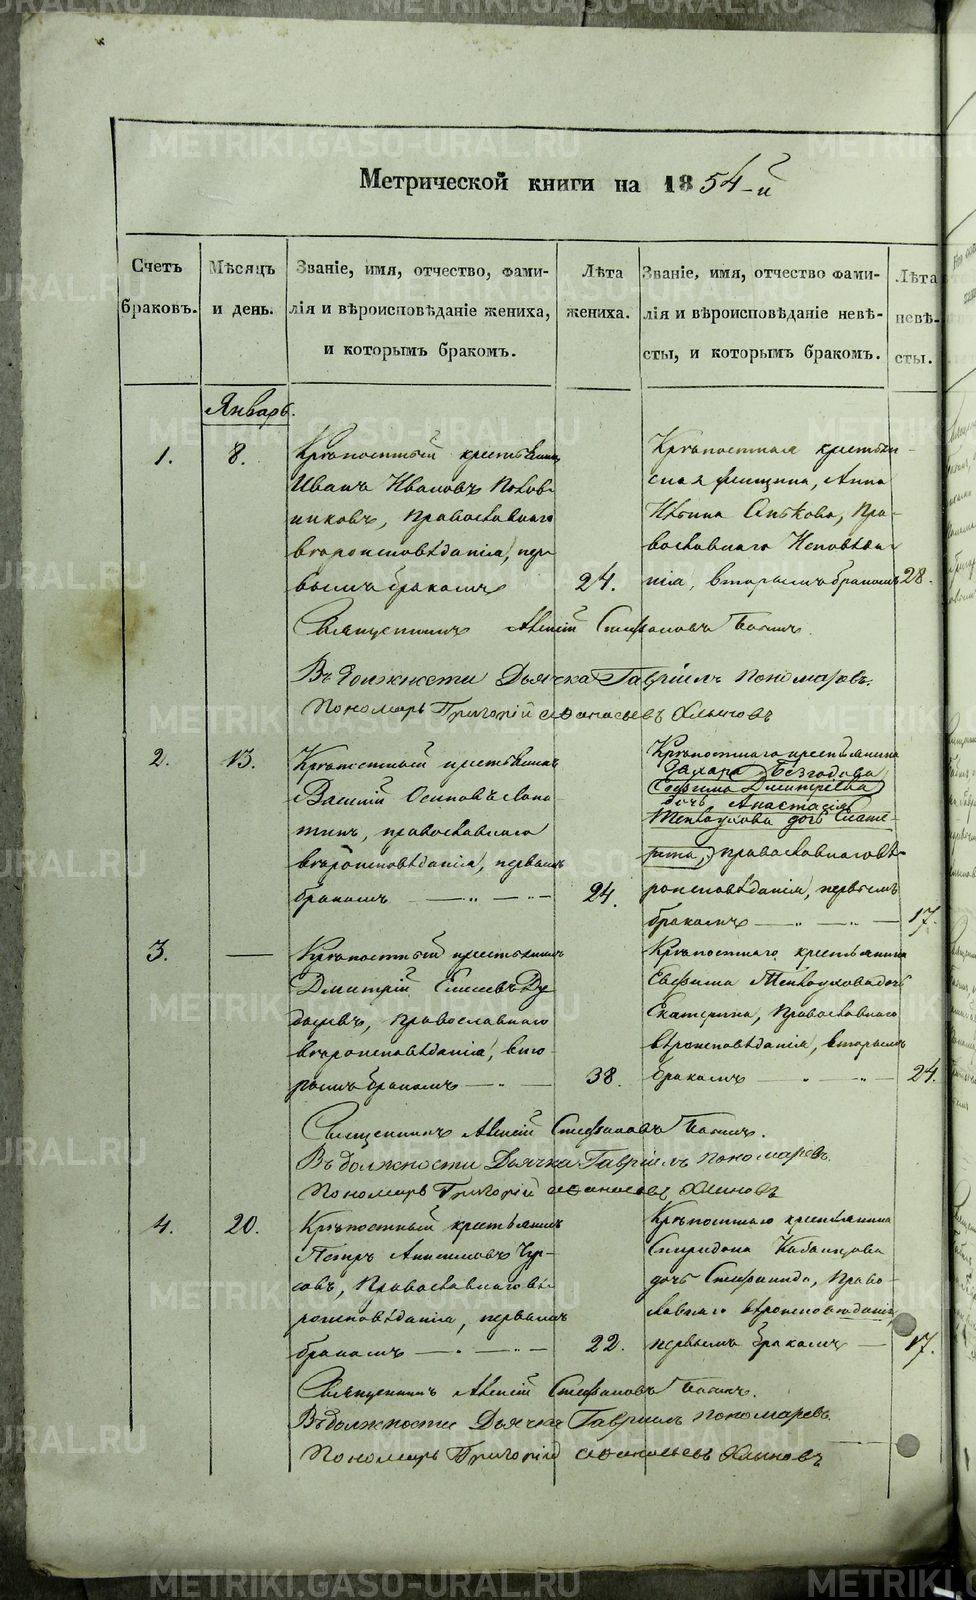 METRIKI.GASO-URAL.RU
Метрической книги на 1854-й
Счетъ браковъ.
Мѣсяцъ и день.
Званіе, имя, отчество, фами-
лія и вѣроисповѣданіе жениха,
и которымъ бракомъ.
Лѣта жениха.
Званіе, имя, отчество фами-
лія и вѣроисповѣданіе невѣ-
сты, и которымъ бракомъ.
Лѣта невѣ-
сты.
Январь.
1.
8.
Крѣпостный крестьянинъ
Иванъ Ивановъ
православнаго
вѣроисповѣданія, пер-
вымъ бракомъ
24.
Крѣпостная крестьян-
ская Анна
Пра-
вославнаго Исповѣда-
нія, вторымъ бракомъ
28.
Священникъ Алексій Стефановъ
Въ должности Дьячка Гавріилъ Пономаревъ.
Пономарь Григорій Афанасьевъ Хлыновъ
2.
13.
Крѣпостный крестьянинъ
Василій Осиповъ
православнаго
вѣроисповѣданія, первымъ
бракомъ
24.
Крѣпостнаго крестьянина
Захара Безгодова
Дмитріева
дочь Анастасія
дочь
православнаго вѣ-
роисповѣданія, первымъ
бракомъ
17.
3.
Крѣпостный крестьянинъ
Дмитрій Елисеевъ
Православнаго
вѣроисповѣданія, вто-
рымъ бракомъ
38.
Крѣпостнаго крестьянина
дочь
Екатерина, Православнаго
вѣроисповѣданія, вторымъ
бракомъ
24.
Священникъ Алексій Стефановъ
Въ должности Дьячка Гавріилъ Пономаревъ.
Пономарь Григорій Афанасьевъ Хлыновъ
4.
20.
Крѣпостный крестьянинъ
Петръ
Православнаго вѣ-
роисповѣданія, первымъ
бракомъ
22.
Крѣпостнаго крестьянина
Спиридона
дочь Стефанида, Право-
славнаго вѣроисповѣданія,
первымъ бракомъ
17.
Священникъ Алексій Стефановъ
Въ должности Дьячка Гавріилъ Пономаревъ.
Пономарь Григорій Афанасьевъ Хлыновъ